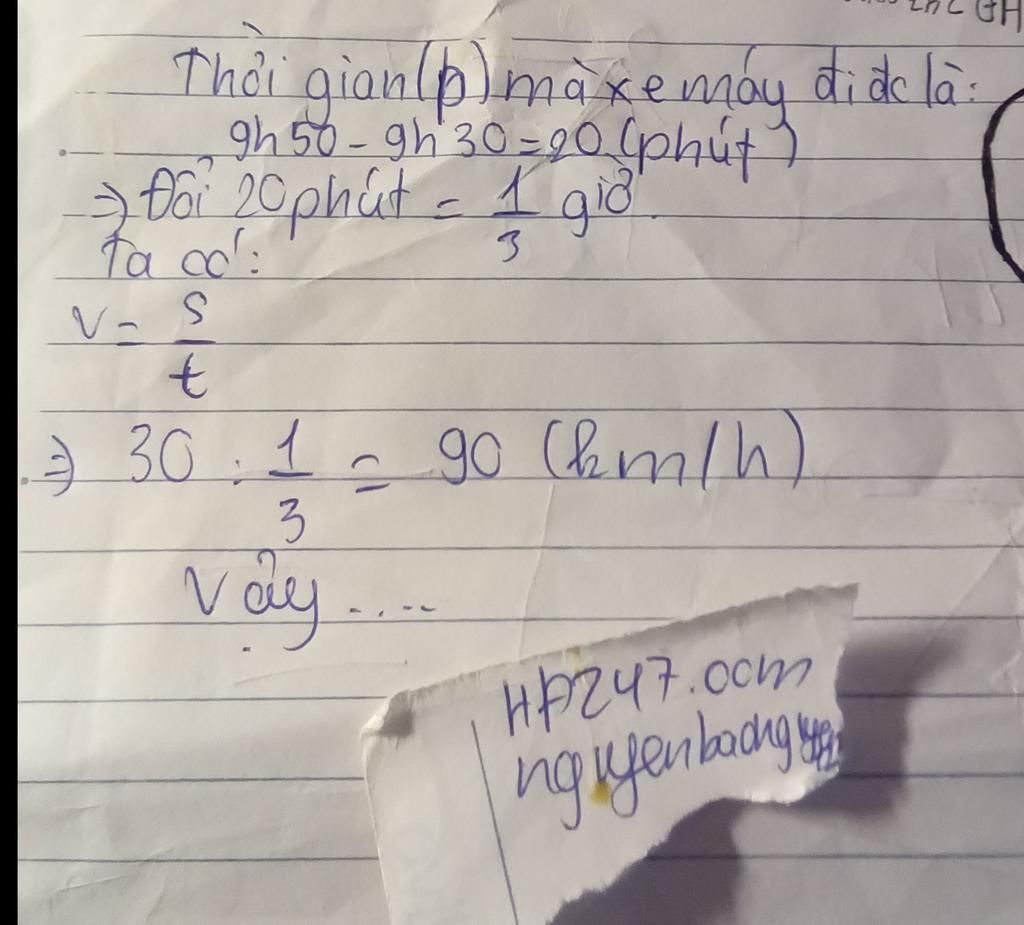 Thời gian(p) mà xe máy đi đc là:
9h50 - 9h30 = 20 (phút)
⇒ Đổi 20 phút = 1/3 giờ
Ta có:
v = s/t
⇒ 30 : 1/3 = 90 (km/h)
Vậy ....
HD247.com